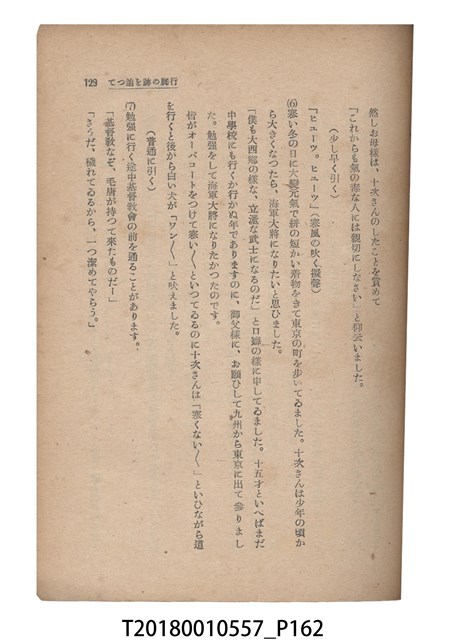 行脚の跡を追つて 129
然しお母様は、十次さんのしたことを賞めて
「これからも氣の毒な人には親切にしなさい」と仰云いました。
(少し早く引く)
「ヒューツ。ヒューツ」(寒風の吹く擬聲)
(6)寒い冬の日に大變元氣で絣の短かい着物をきて東京の町を歩いてゐました。十次さんは少年の頃か
ら大きくなつたら、海軍大將になりたいと思ひました。
「僕も大西郷の樣な、立派な武士になるのだ」と口癖の樣に申してゐました。十五才といへばまだ
中學校にも行くか行かぬ年でありますのに、御父樣に、お願ひして九州から東京に出て參りまし
た。勉强をして海軍大將になりたかつたのです。
皆がオーバコートをつけて寒い〱といつてゐるのに十次さんは「寒くない〱」といひながら道
を行くと後から白い犬が「ワン〱」と吠えました。
(普通に引く)
(7)勉强に行く途中基督敎會の前を通ることがあります。
「基督敎なぞ、毛唐が持つて來たものだ—」
「さうだ、穢れてゐるから、一つ潔めてやらう。」
T20180010557_P162